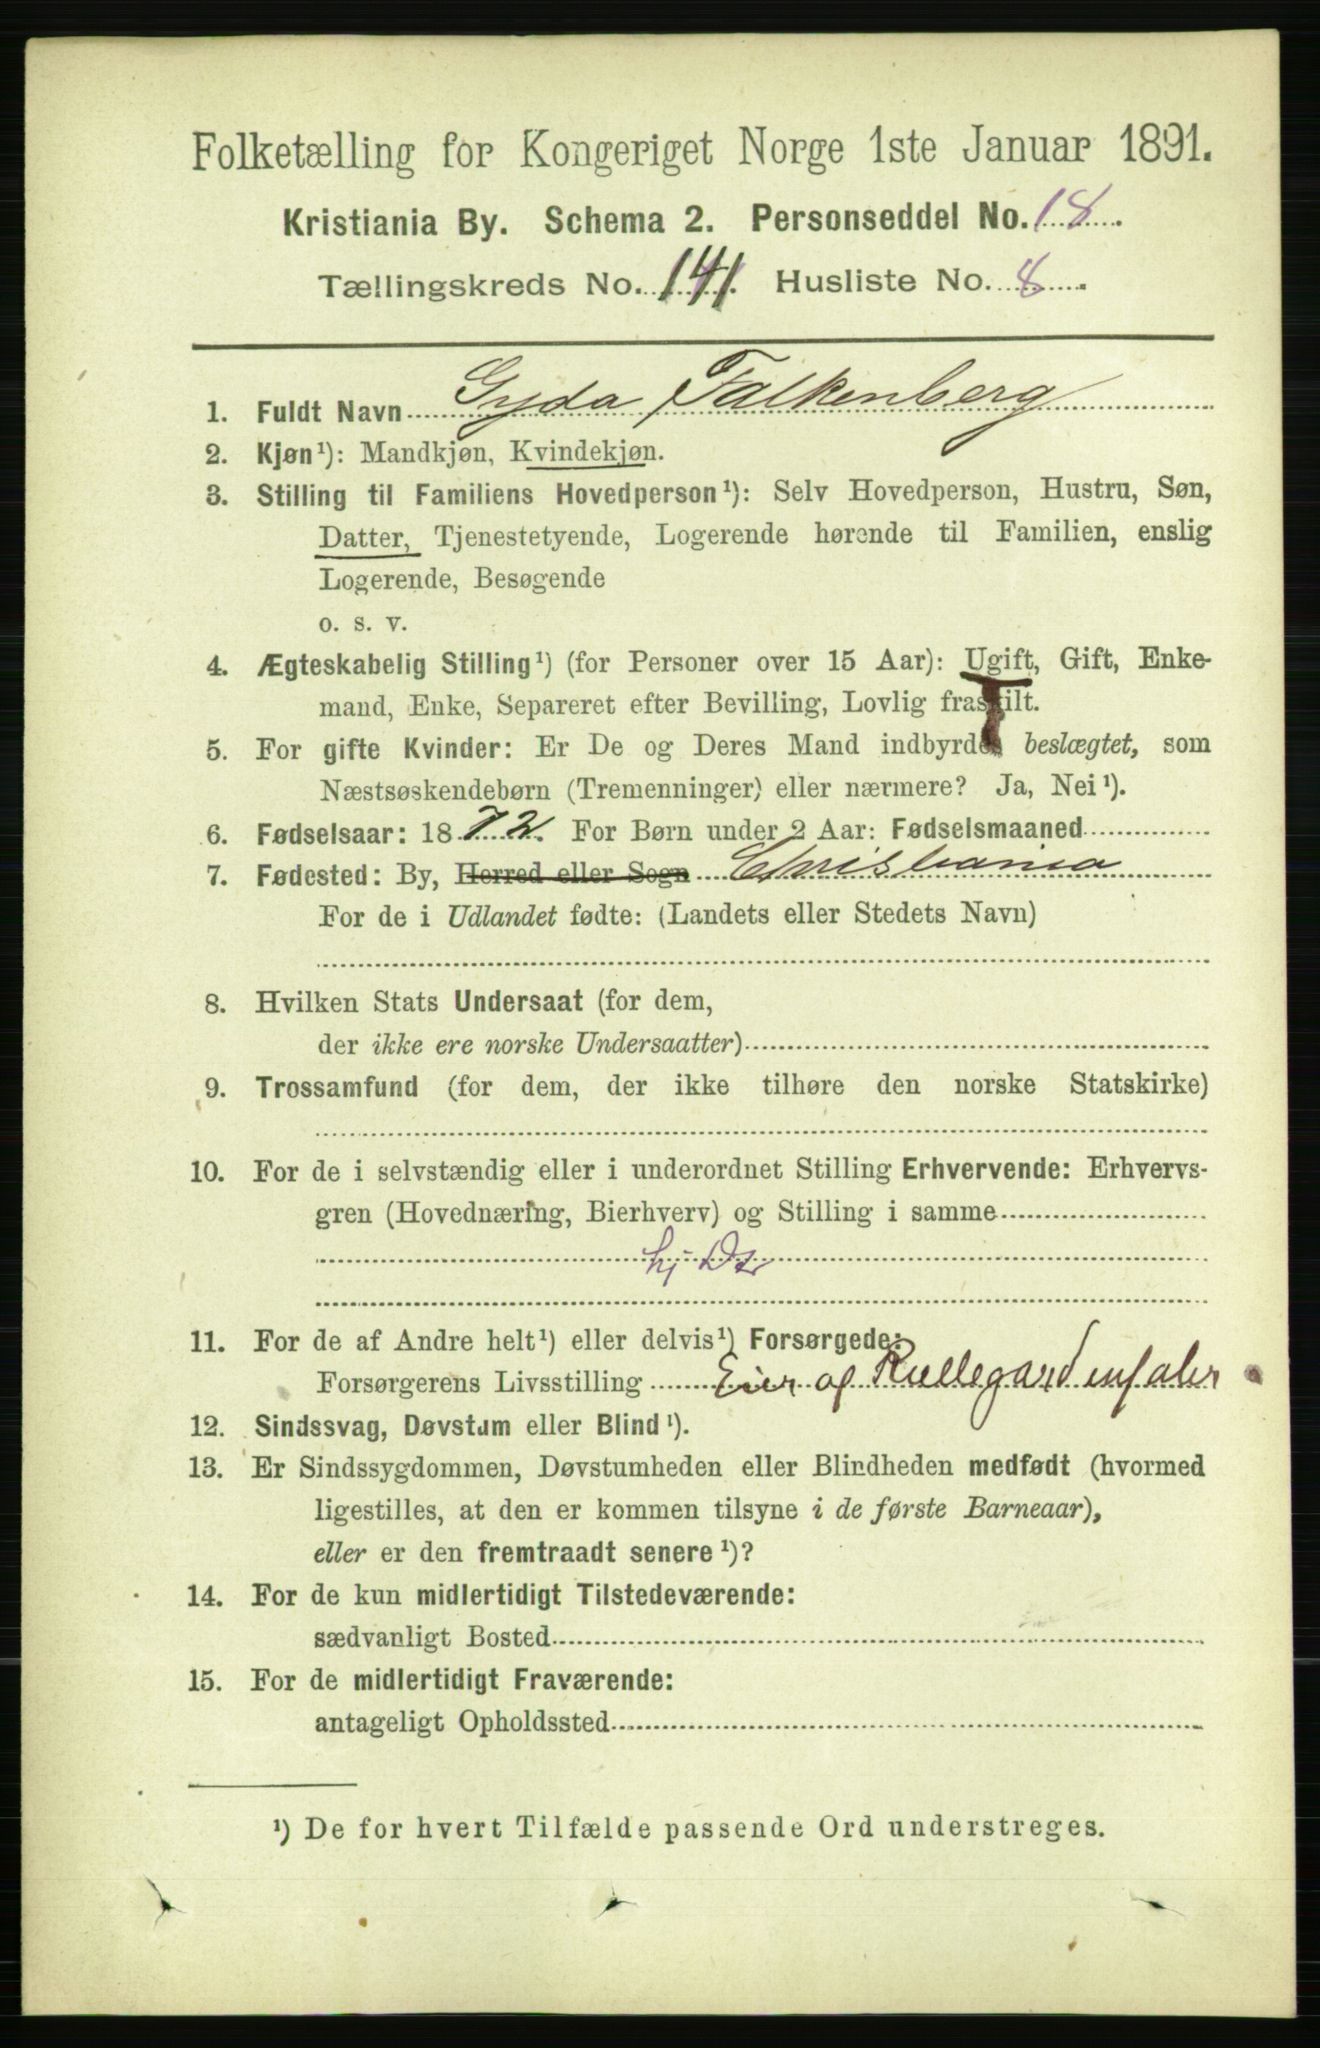 Folketælling for Kongeriget Norge 1ste Januar 1891.
Kristiania By. Schema 2. Personseddel No. 18.
Tællingskreds No. 141. Husliste No. 8.
1. Fuldt Navn Gyda Falkenberg
2. Kjøn¹): Mandkjøn, Kvindekjøn.
3. Stilling til Familiens Hovedperson¹): Selv Hovedperson, Hustru, Søn,
Datter, Tjenestetyende, Logerende hørende til Familien, enslig
Logerende, Besøgende
o. s. v.
4. Ægteskabelig Stilling¹) (for Personer over 15 Aar): Ugift, Gift, Enke-
mand, Enke, Separeret efter Bevilling, Lovlig fraskilt.
5. For gifte Kvinder: Er De og Deres Mand indbyrdes beslægtet, som
Næstsøskendebørn (Tremenninger) eller nærmere? Ja, Nei¹).
6. Fødselsaar: 1872. For Børn under 2 Aar: Fødselsmaaned
7. Fødested: By, Herred eller Sogn Christiania
For de i Udlandet fødte: (Landets eller Stedets Navn)
8. Hvilken Stats Undersaat (for dem,
der ikke ere norske Undersaatter)
9. Trossamfund (for dem, der ikke tilhøre den norske Statskirke)
10. For de i selvstændig eller i underordnet Stilling Erhvervende: Erhvervs-
gren (Hovednæring, Bierhverv) og Stilling i samme
hj. Dtr
11. For de af Andre helt¹) eller delvis¹) Forsørgede:
Forsørgerens Livsstilling Eier af
12. Sindssvag, Døvstum eller Blind¹).
13. Er Sindssygdommen, Døvstumheden eller Blindheden medfødt (hvormed
ligestilles, at den er kommen tilsyne i de første Barneaar),
eller er den fremtraadt senere¹)?
14. For de kun midlertidigt Tilstedeværende:
sædvanligt Bosted
15. For de midlertidigt Fraværende:
antageligt Opholdssted
¹) De for hvert Tilfælde passende Ord understreges.